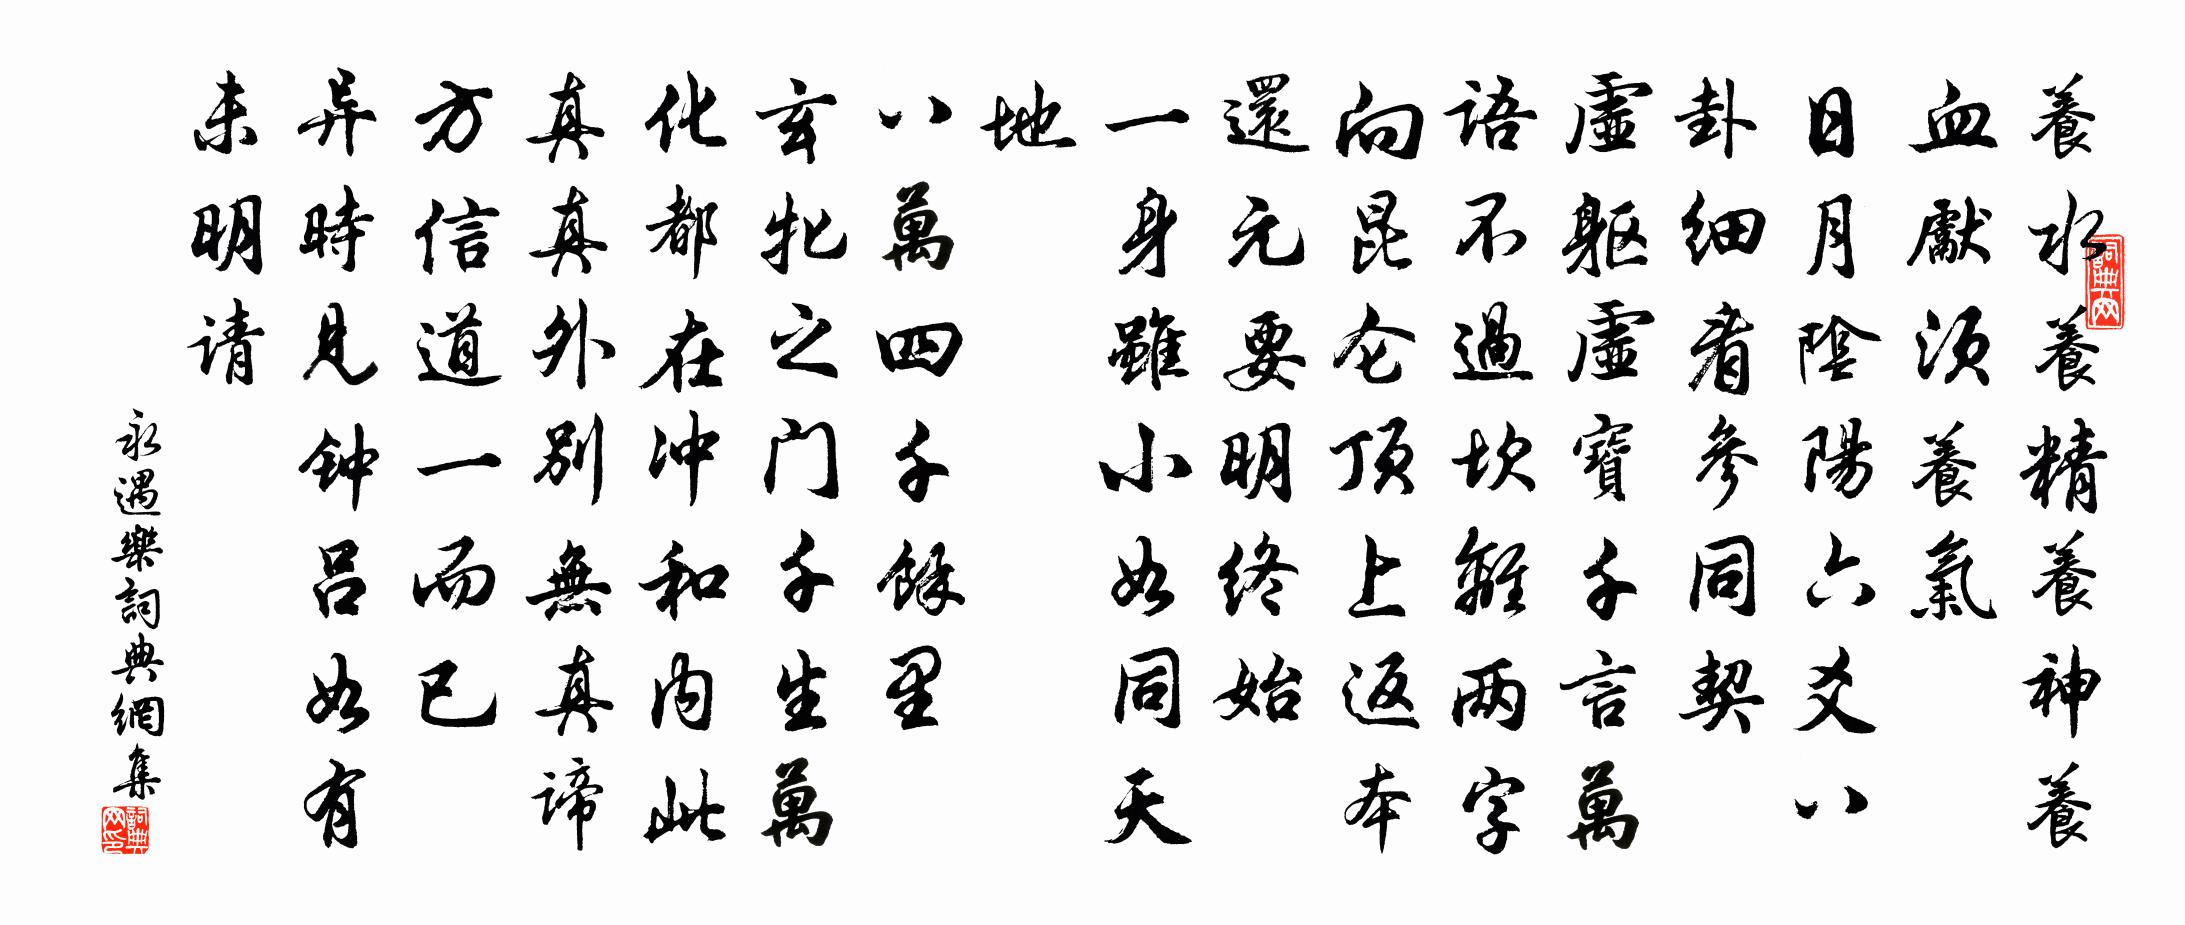 養水養精養神養
血獻须養氣
日月陰陽六爻八
卦細看參同契
虛軀虛寶千言萬
語不過坎離两字
向昆仑顶上返本
還元要明终始
一身雖小如同天
地
八萬四千餘里
玄牝之门千生萬
化都在冲和内此
真真外別無真諦
方信道一而已
异時見钟吕如有
未明请
永遇樂詞典網集
詞典网
詞典网印